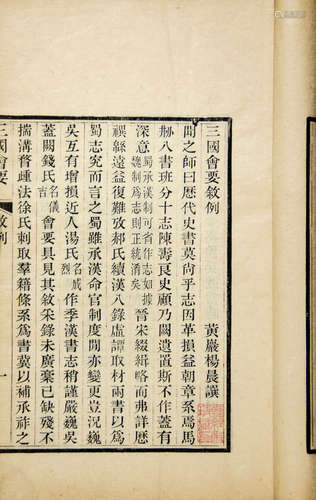 三國會要敘例
黃巖楊晨譔
聞之師曰歷代史書莫尚乎志因革損益朝章系焉馬
剏八書班分十志陳壽良史顧乃闕遺置斯不作蓋有
深意蜀承漢制可省作志如據魏制爲志則正統淆矣晉宋綴緝略而弗詳歷
禩緜遠益復難攷郝氏續漢八錄虛譚取材兩書以爲
蜀志究而言之蜀雖承漢命官制度閒亦變更豈況巍
吳互有增損近人湯氏名成烈作季漢書志稍謹嚴巍吳
蓋闕錢氏名儀吉會要具見敘采錄未廣兼已缺殘不
揣溝瞀踵法徐氏刺取羣籍條系爲書冀以補承祚之
三國會要
敘例
一